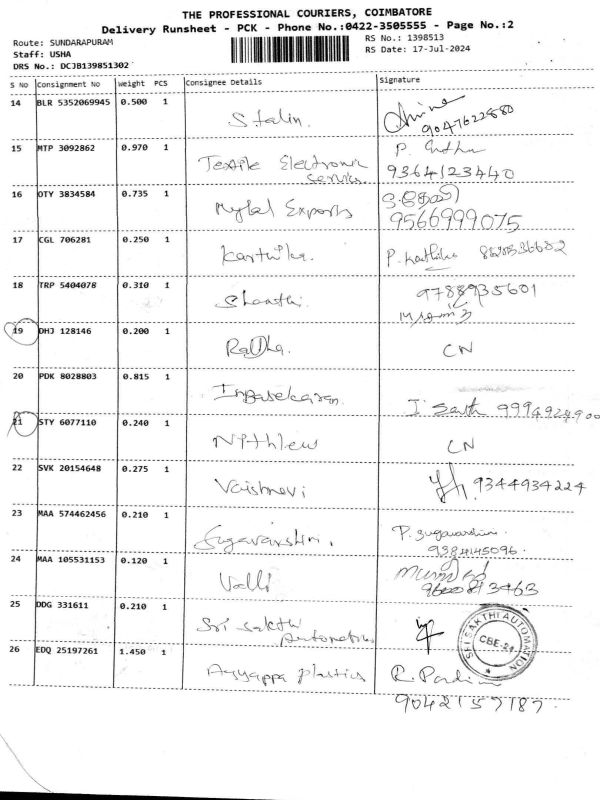 THE PROFESSIONAL COURIERS, COIMBATORE
Delivery Runsheet - PCK - Phone No.:0422-3505555 - Page No.:2
Route: SUNDARAPURAM
RS No.: 1398513
Staff: USHA
RS Date: 17-Jul-2024
DRS No.: DCJB139851302
S No Consignment No Weight PCS Consignee Details Signature
14 BLR 5352069945 0.500 1 Stalin.
9047622880
15 MTP 3092862 0.970 1 Textile Electronic P.
services 9364123440
16 OTY 3834584 0.735 1 Mylal Exports
9566999075
17 CGL 706281 0.250 1 Karthika. P.
18 TRP 5404078 0.310 1 Shanthi. 9788935601
19 DHJ 128146 0.200 1 Radha. CN
20 PDK 8028803 0.815 1 Inbasekaran I
21 STY 6077110 0.240 1 CN
22 SVK 20154648 0.275 1 Vaishnavi 9344934224
23 MAA 574462456 0.210 1 Sugavarshini. P. Sugavarshini
9384145096.
24 MAA 105531153 0.120 1 Valli
25 DDG 331611 0.210 1 Sri Sakthi
Automation
SRI SAKTHI AUTOMATION
CBE-24
26 EDQ 25197261 1.450 1 Ayyappa plastics R.
9042157187.